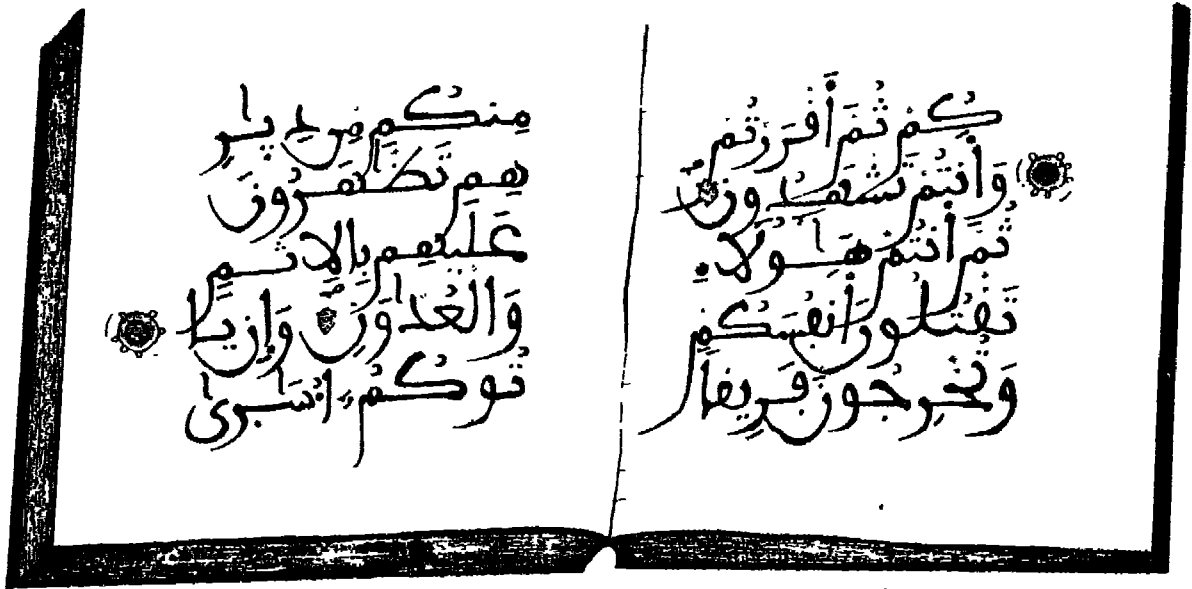 كُمْ ثُمَّ أَقْرَرْتُمْ
وَأَنتُمْ تَشْهَدُونَ
ثُمَّ أَنتُمْ هَٰؤُلَاءِ
تَقْتُلُونَ أَنفُسَكُمْ
وَتُخْرِجُونَ فَرِيقًا
مِنكُم مِّن دِيَٰرِ
هِمْ تَظَّٰهَرُونَ
عَلَيْهِم بِالْإِثْمِ
وَالْعُدْوَٰنِ وَإِن يَا
تُوكُمُ أُسَٰرَىٰ